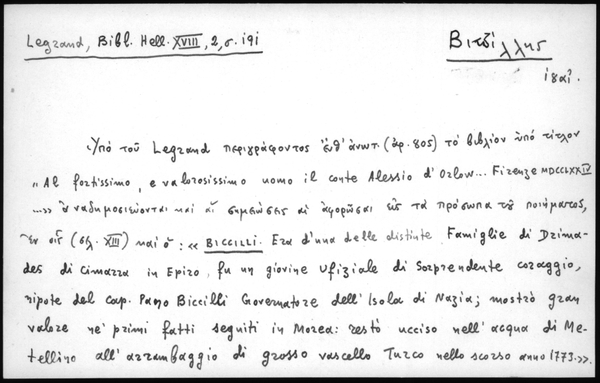 Legrand, Bibl. Hell. XVIII, 2, σ. 191
Βιτσίλλης
Ὑπό τοῦ Legrand περιγράφοντος ἐνθ' ἀνωτ. (ἀρ. 805) τό βιβλίον ὑπό τίτλον
"Al fortissimo, e valorosissimo uomo il conte Alessio d'Orlow... Firenze MDCCLXXIV
...» ἀναδημοσιεύονται καί αἱ σημειώσεις αἱ ἀφορῶσαι εἰς τά πρόσωπα τοῦ ποιήματος,
ἐν οἷς (σελ. XIII) καί ὁ: «BICCILLI. Era d'una delle distinte Famiglie di Drima-
des di Cimarra in Epiro, fu un giovine Ufiziale di Sorprendente coraggio,
nipote del cap. Pano Biccilli Governatore dell'Isola di Naxia; mostrò gran
valore ne' primi fatti seguiti in Morea: restò ucciso nell'acqua di Me-
tellino all'arrambaggio di grosso vascello Turco nello scorso anno 1773.».